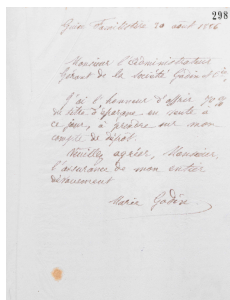 298
Guise Familistère 20 août 1886
Monsieur l'administrateur
Gérant de la Société Godin & Cie
J'ai l'honneur d'offrir
de titre d'épargne en vente à
ce jour, à prendre sur mon
compte de dépôt.
Veuillez agréer, Monsieur,
l'assurance de mon entier
dévouement
Marie Godin